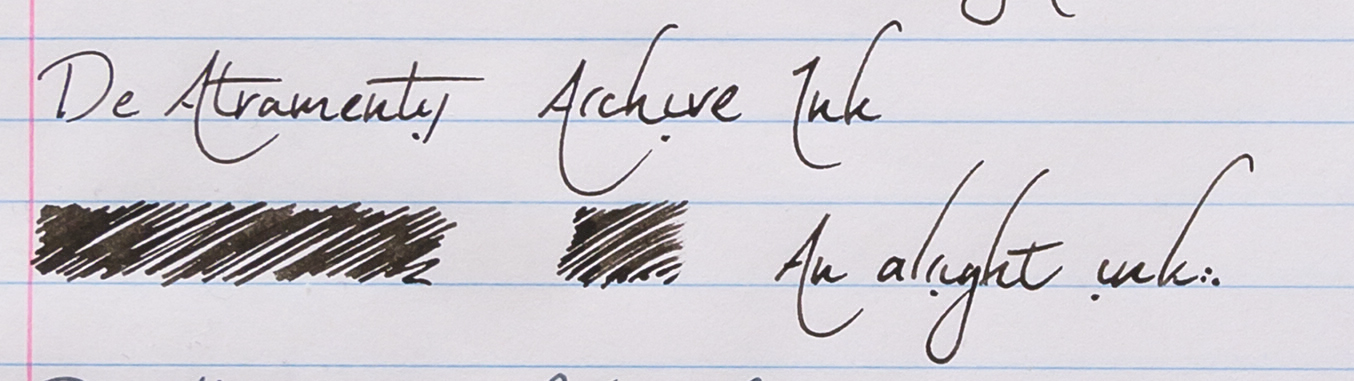 De Atramentis Archive Ink
An alright ink:.